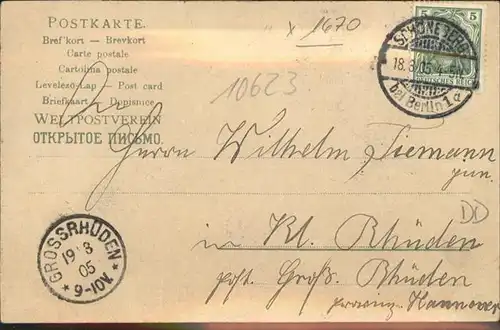 POSTKARTE.
Brefkort — Brevkort
Carte postale
Cartolina postale
Levelező-Lap — Post card
Briefkaart — Dopisnice
WELTPOSTVEREIN
ОТКРЫТОЕ ПИСЬМО.
x 1670
10623
5 5
SCHÖNEBERG
18.8.05.
bei Berlin 1 a
Herrn Wilhelm Tiemann
jun.
DD
in Kl. Rhüden
post. Groß. Rhüden
provinz. Hannover
GROSSRHÜDEN
19 8
05
* 9-10V. *